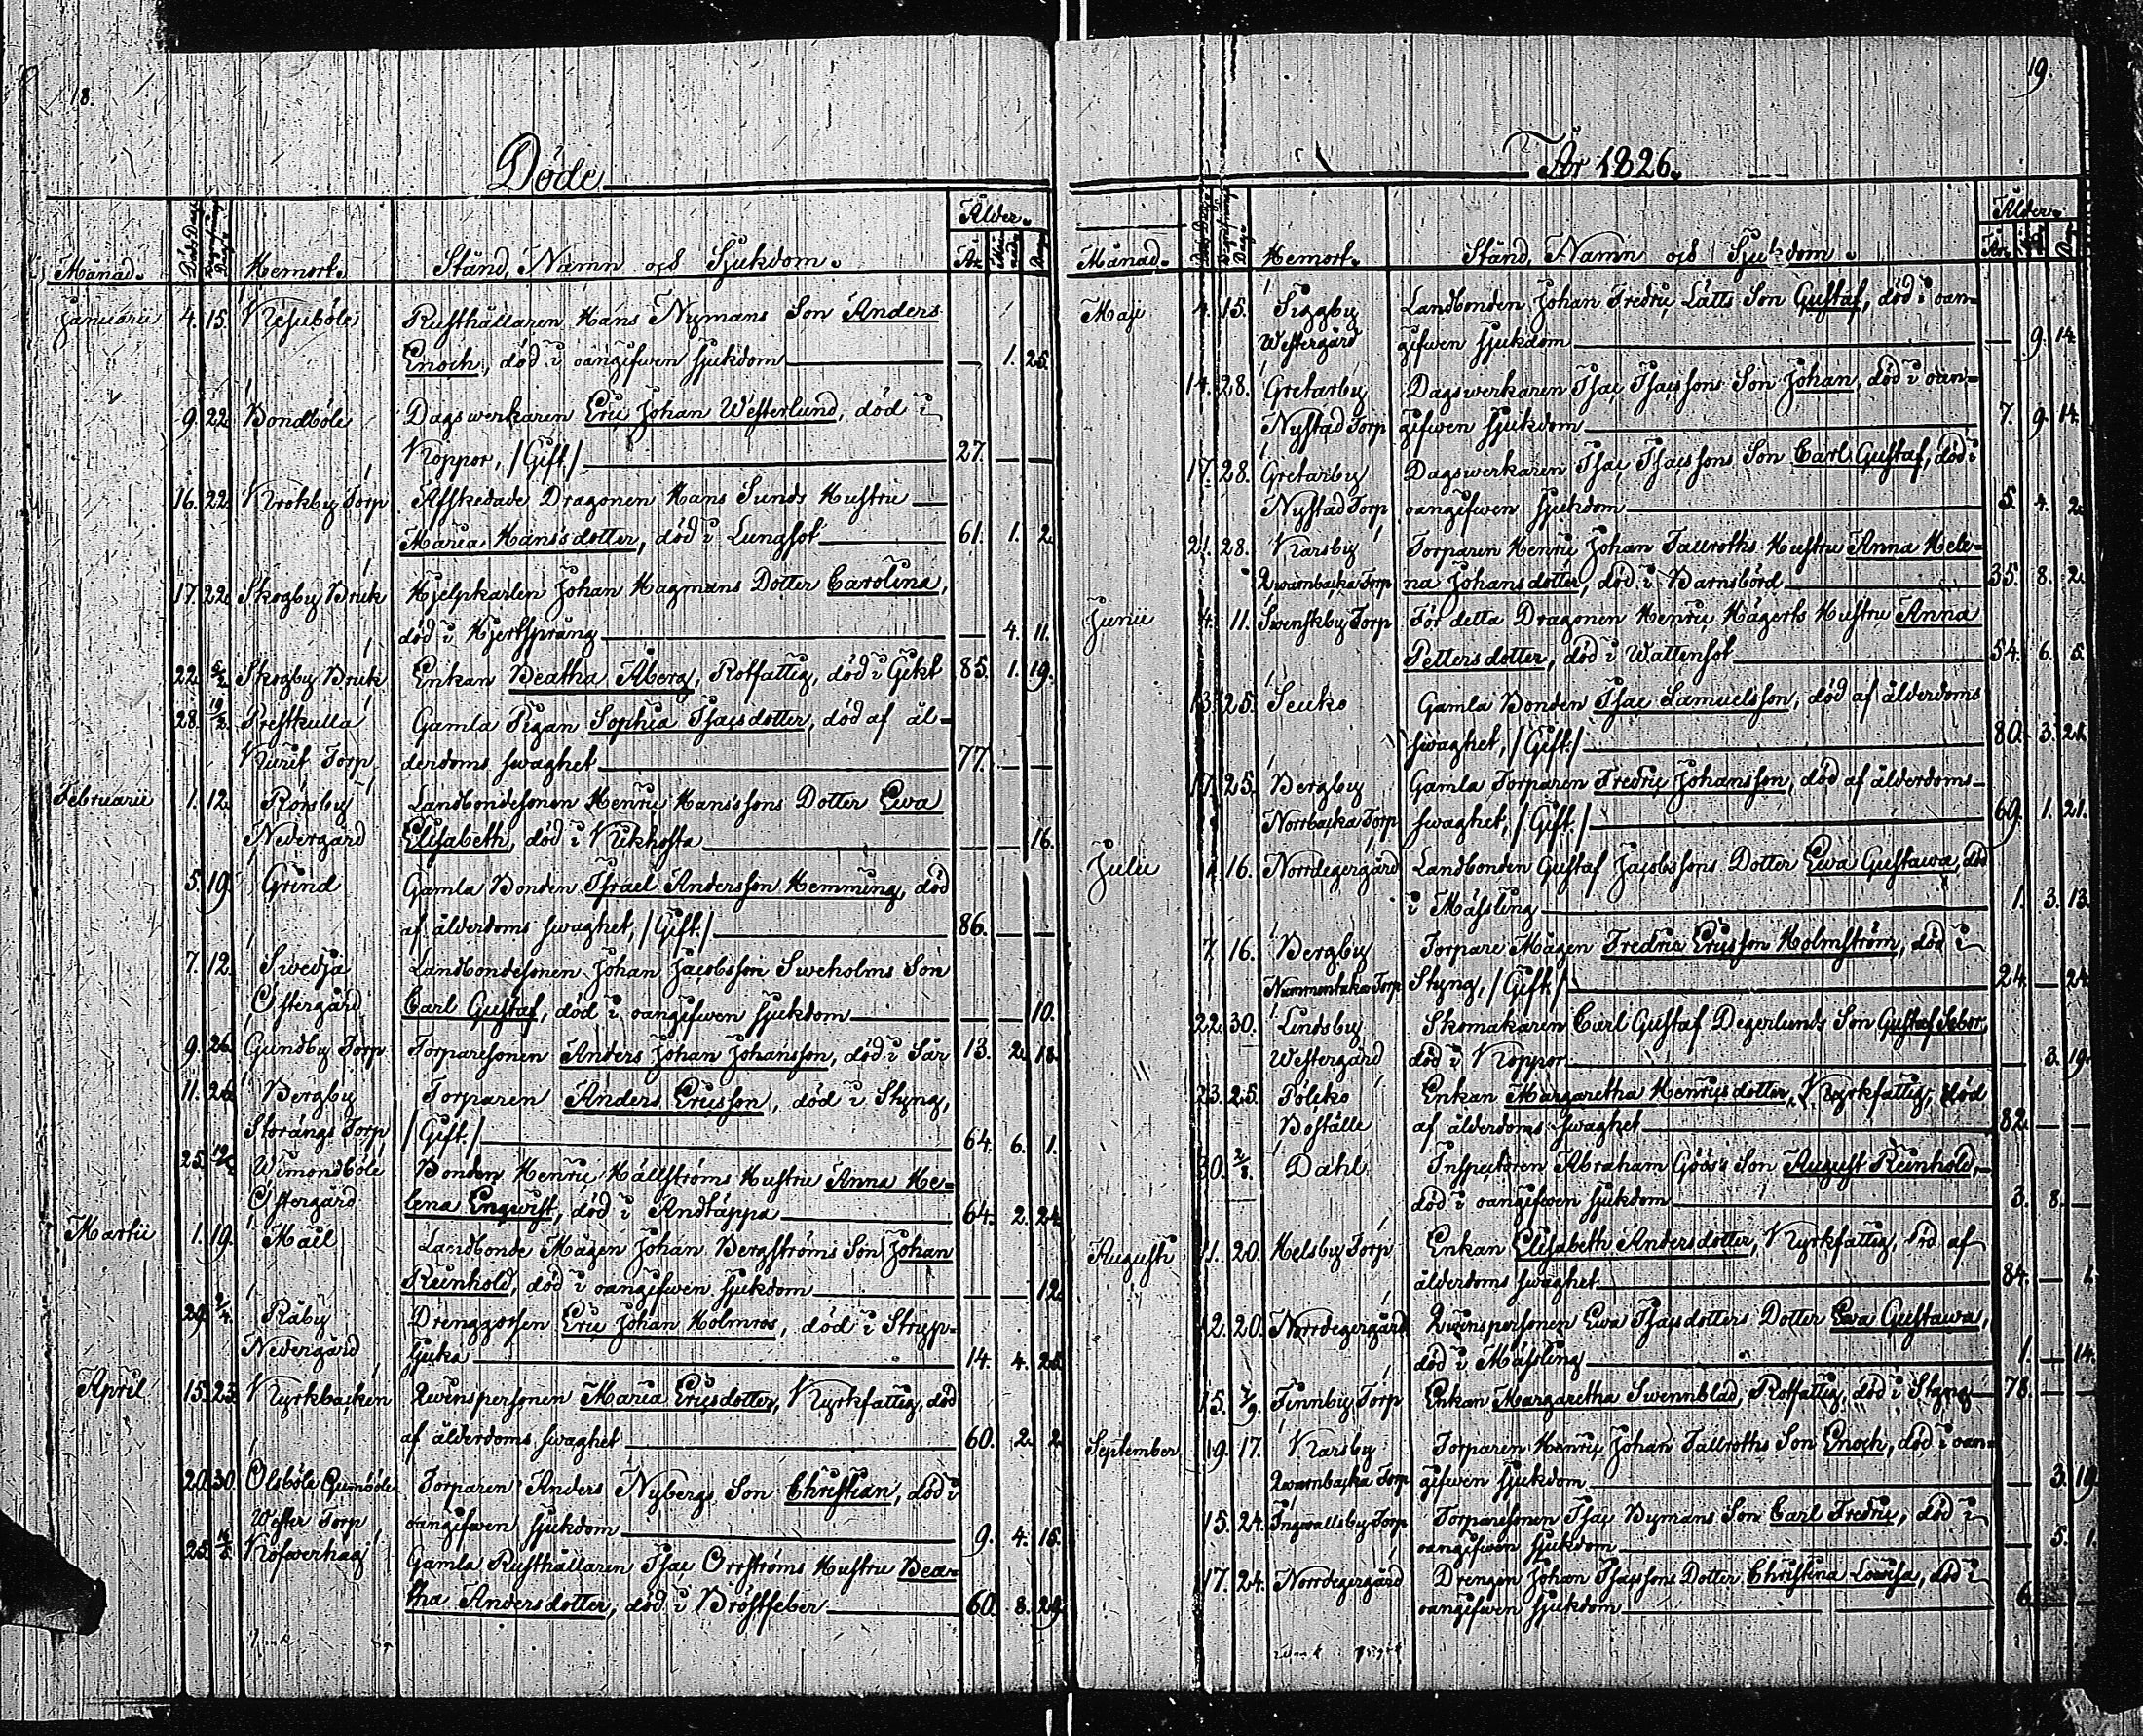 18.
Döde
Månad. Döds Dag. Begrafnings Dag. Hemort. Stånd, Namn och Sjukdom. Ålder.
År. Månader Dagar
Januarii 4. 15. Resuböle Rusthållaren Hans Nymans Son Anders
Enoch, död i oangifwen sjukdom — 1. 25.
9. 22. Bondböle Dagswerkaren Eric Johan Westerlund, död i
Koppor, /Gift./ 27. — —
16. 22. Krokby Torp Afskedade Dragonen Hans Sunds Hustru
Maria Hansdotter, död i Lungsot 61. 1. 2.
17. 22. Skogby Bruk Hjelpkarlen Johan Hagmans Dotter Carolina,
död i Hjertsprång — 4. 11.
22. 5/2. Skogby Bruk Enkan Beatha Åberg, Rotfattig, död i Gikt 85. 1. 19.
28. 19/2. Prestkulla Gamla Pigan Sophia Isacsdotter, död af ål-
Kurit Torp derdoms swaghet 77. — —
Februarii 1. 12. Rörsby Landbondesonen Henric Hanssons Dotter Ewa
Nedergård Elisabeth, död i Kikhosta — — 16.
5. 19. Grind Gamla Bonden Israel Andersson Hemming, död
af ålderdoms swaghet, /Gift./ 86. — —
7. 12. Swedja Landbondesonen Johan Jacobsson Sweholms Son
Östergård Carl Gustaf, död i oangifwen sjukdom — — 10.
9. 26. Gundby Torp Torparesonen Anders Johan Johansson, död i Sår 13. 2. 18.
11. 26. Bergby Torparen Anders Ericsson, död i Styng,
Storängs Torp /Gift./ 64. 6. 1.
25. Wimondböle Bonden Henric Hällströms Hustru Anna He-
Östergård lena Engwist, död i Andtäppa 64. 2. 24.
Martii 1. 19. Mäil Landbonde Mågen Johan Bergströms Son Johan
Reinhold, död i oangifwen sjukdom — — 12.
29. 2/4. Råby Drenggossen Eric Johan Holmros, död i Strup-
Nedergård sjuka 14. 4. 25.
April 15. 23. Kyrkbacken Qwinspersonen Maria Ericsdotter, Kyrkfattig, död
af ålderdoms swaghet 60. 2. 2.
20. 30. Olsböle Gumböle Torparen Anders Nybergs Son Christian, död i
Wester Torp oangifwen sjukdom 9. 4. 15.
25. Kofwerhag Gamla Rusthållaren Isac Orrströms Hustru Bea-
tha Andersdotter, död i Bröstfeber 60. 8. 24.
19.
År 1826.
Månad. Döds Dag. Begrafnings Dag. Hemort. Stånd, Namn och Sjukdom. Ålder.
År.
Maji 4. 15. Siggby Landbonden Johan Fredric Lätts Son Gustaf, död i oan-
Westergård gifwen sjukdom — 9. 14.
14. 28. Gretarby Dagswerkaren Isac Isacssons Son Johan, död i oan-
Nystad Torp gifwen sjukdom 7. 9. 14.
17. 28. Gretarby Dagswerkaren Isac Isacssons Son Carl Gustaf, död i
Nystad Torp oangifwen sjukdom 5. 4. 2.
21. 28. Karsby Torparen Henric Johan Tallroths Hustru Anna Hele-
Qwarnbacka Torp na Johansdotter, död i Barnsbörd 35. 8. 2.
Junii 4. 11. Swenskby Torp För detta Dragonen Henric Hägerts Hustru Anna
Pettersdotter, död i Wattensot 54. 6. 5.
13. 25. Seuko Gamla Bonden Isac Samuelsson, död af ålderdoms
swaghet, /Gift./ 80. 3.
17. 25. Bergby Gamla Torparen Fredric Johansson, död af ålderdoms-
Norrbacka Torp swaghet, /Gift./ 69. 1. 21.
Julii 1. 16. Norrdegergård Landbonden Gustaf Jacobssons Dotter Ewa Gustawa, död
i Måssling 1. 3. 13.
7. 16. Bergby Torpare Mågen Fredric Ericsson Holmström, död i
Torp Styng, /Gift./ 24. — 24.
22. 30. Lindsby Skomakaren Carl Gustaf Degerlunds Son Gustaf
Westergård död i Koppor — 3. 19.
23. 25. Pölcko Enkan Margaretha Henricsdotter, Kyrkfattig, död
Boställe af ålderdoms swaghet 82. — —
30. 2/8. Dahl Inspectoren Abraham Göös's Son August Reinhold,
död i oangifwen sjukdom 3. 8. —
Augusti 11. 20. Helsby Torp Enkan Elisabeth Andersdotter, Kyrkfattig, död af
ålderdoms swaghet 84. — 1.
12. 20. Norrdegergård Qwinspersonen Ewa Isacsdotters Dotter Ewa Gustawa,
död i Måssling 1. — 14.
15. 7/9. Finnby Torp Enkan Margaretha Swennblad, Rotfattig, död i Styng 78. — —
September 9. 17. Karsby Torparen Henric Johan Tallroths Son Enoch, död i oan-
Qwarnbacka Torp gifwen sjukdom — 3. 19.
15. 24. Ingwallsby Torp Torparesonen Isac Bymans Son Carl Fredric, död i
oangifwen sjukdom — 5. 1.
17. 24. Norrdegergård Drengen Johan Isacssons Dotter Christina Lowisa, död i
oangifwen sjukdom 6.